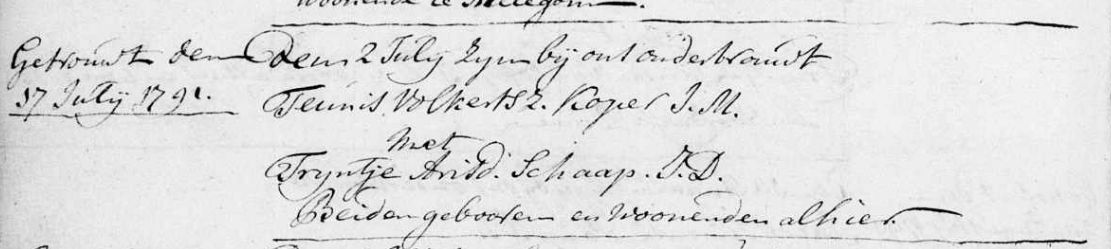 woonende te Hillegom.
Getrouwt den
17 July 1791.
Den 2 July Zyn bij ons onderbrouwt
Teunis Volkertsz. Koper J.M.
Met
Tryntje Arisd. Schaap. J.D.
Beiden gebooren en Woonenden alhier.